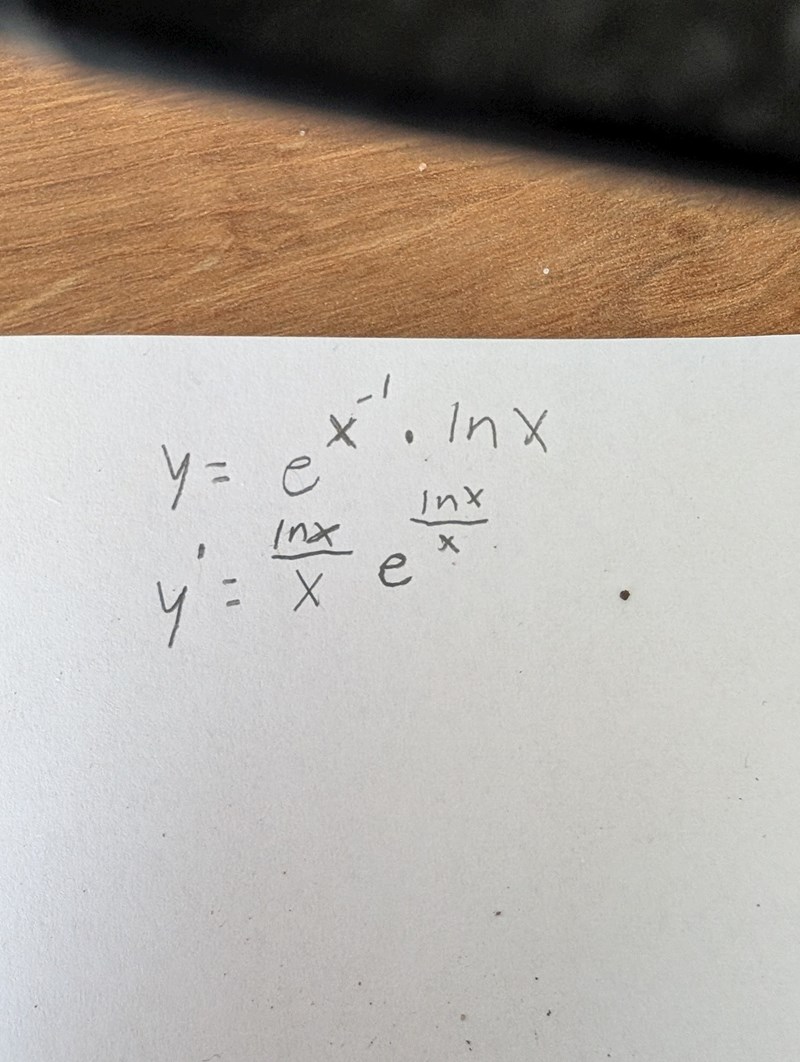 y = e^{x^{-1} · ln x}
y' = \frac{ln x}{x} e^{\frac{ln x}{x}}